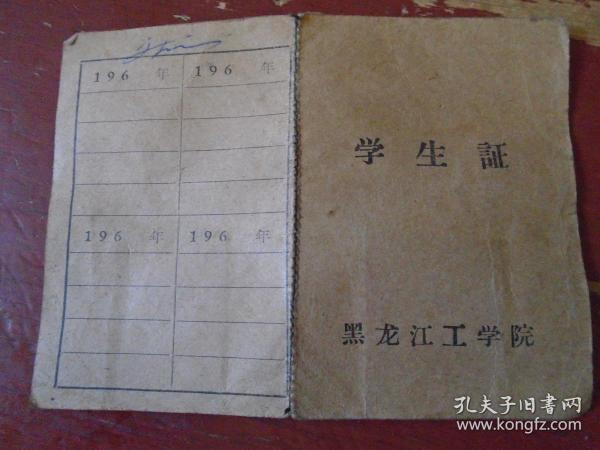 196 年 196 年
196 年 196 年
学生証
黑龙江工学院
孔夫子旧書网
www.kongfz.com